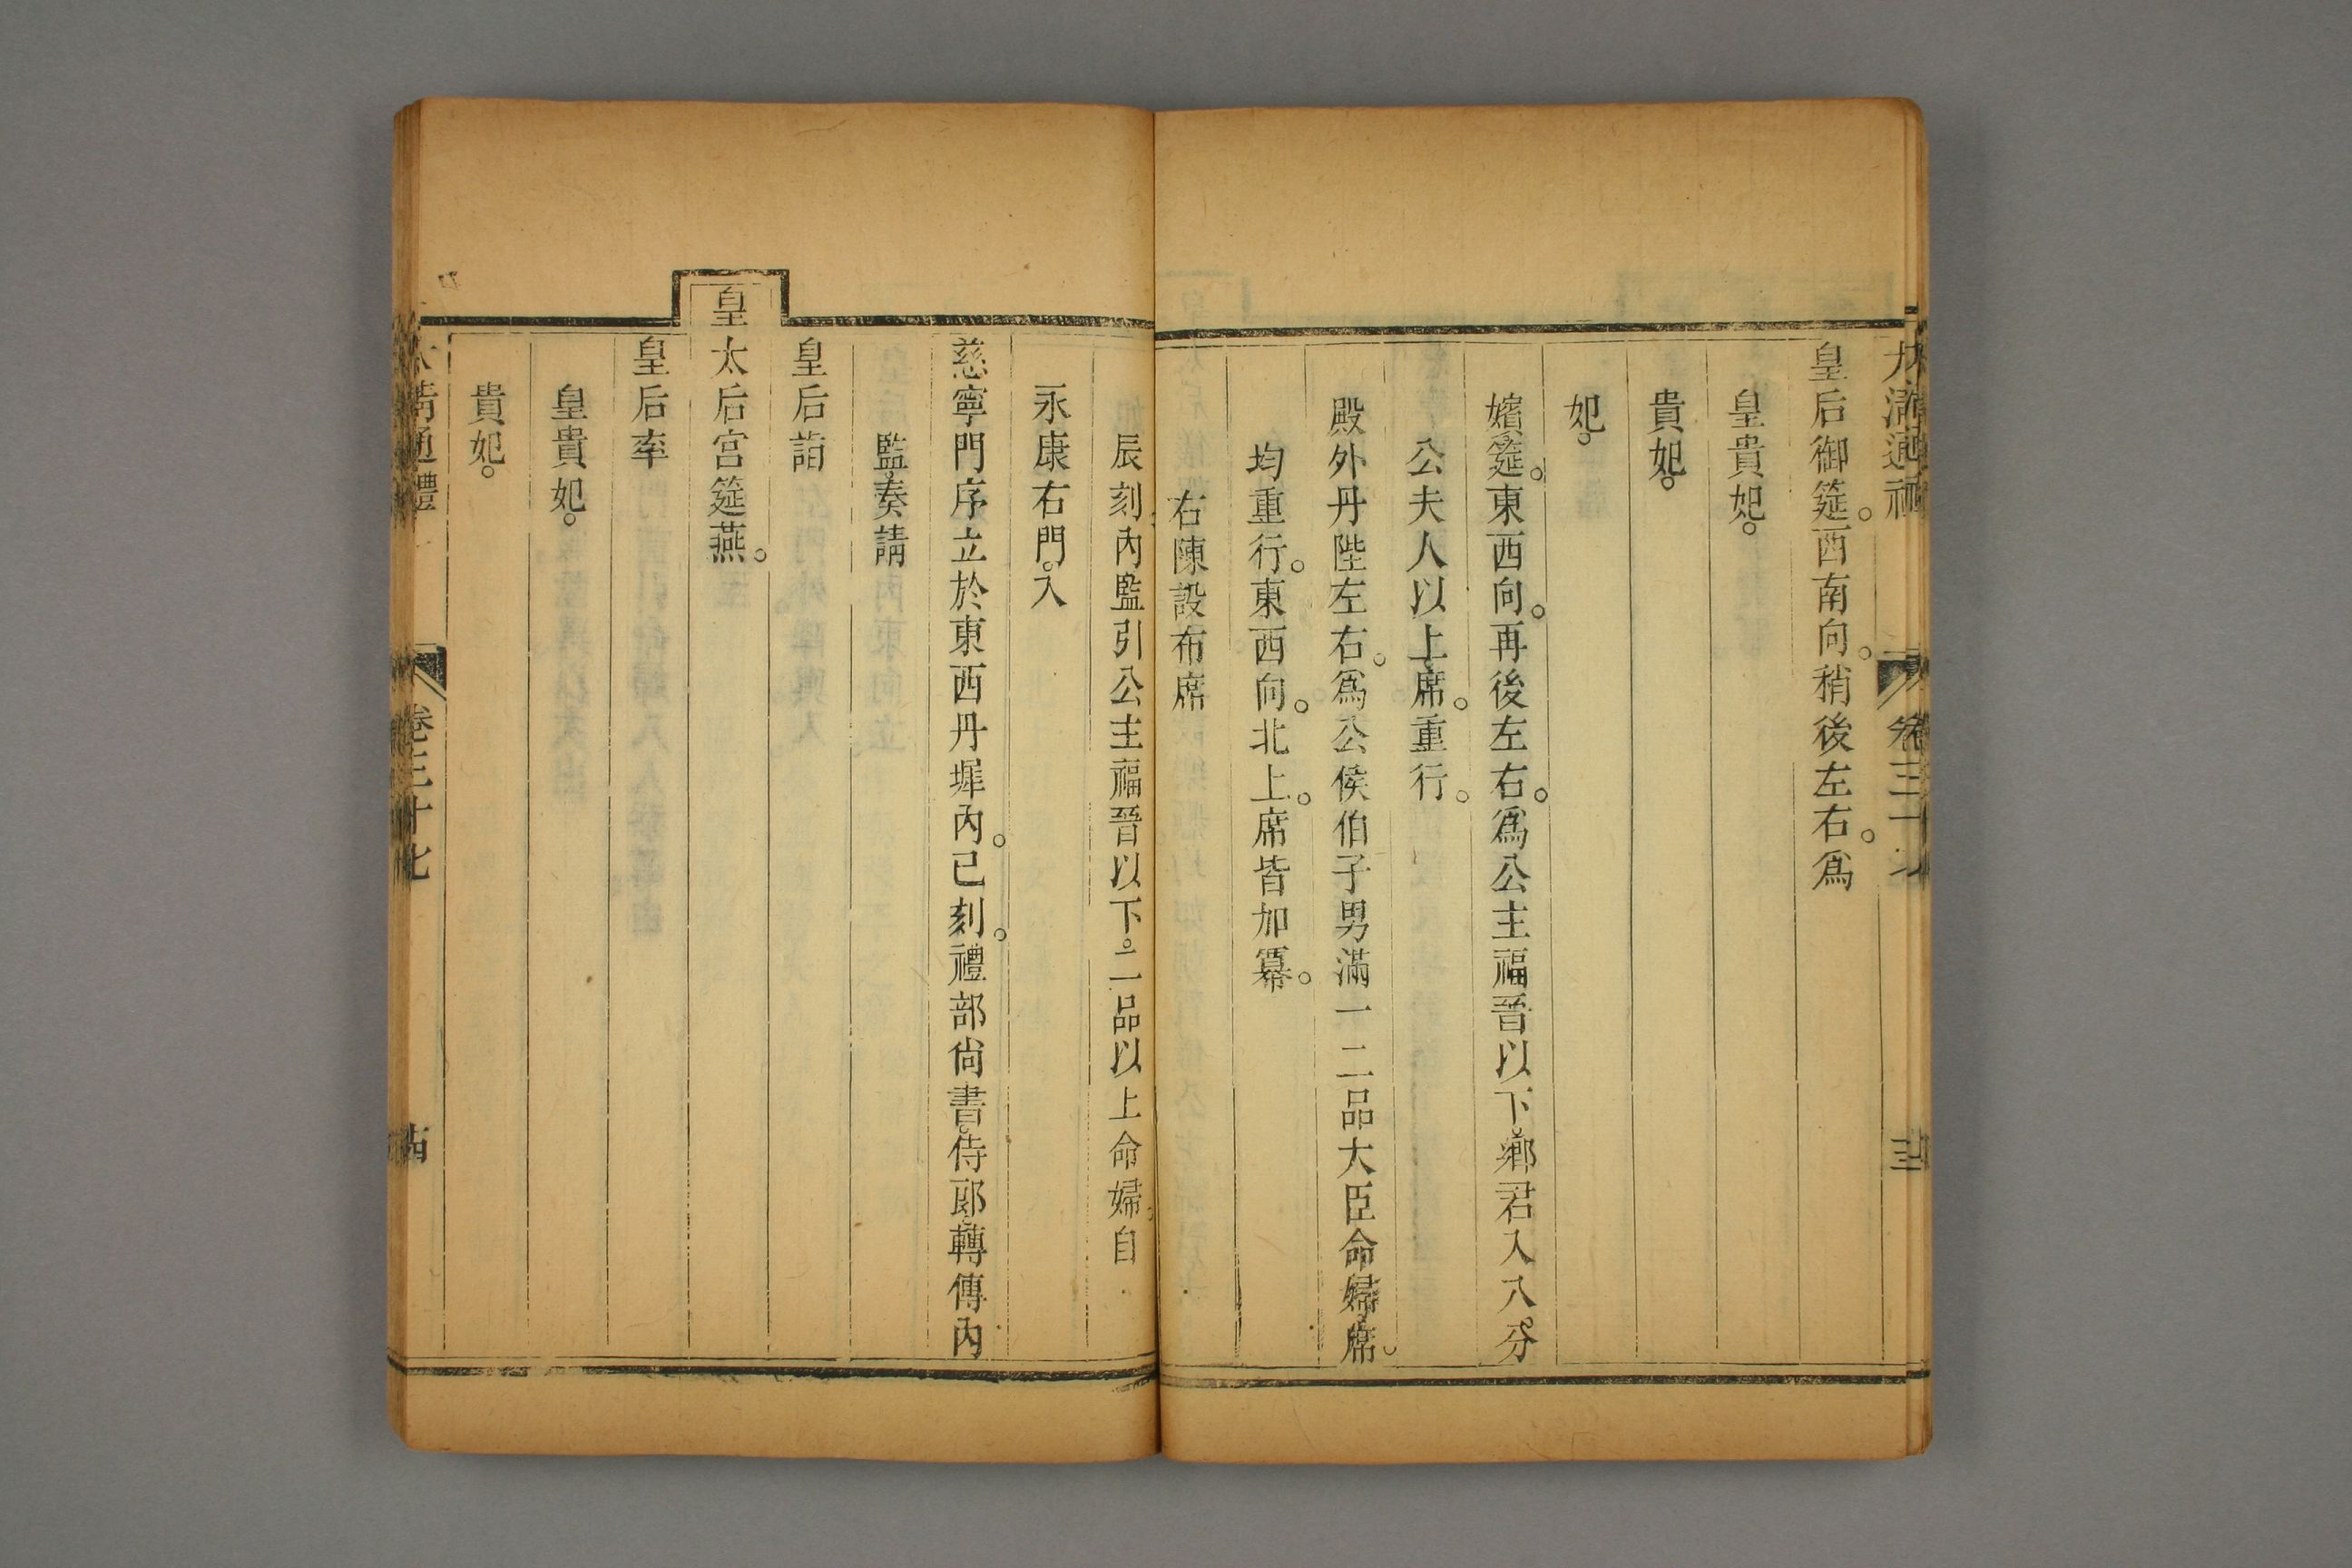 大淸通禮 卷三十七
皇后御筵。西南向。稍後左右。爲
皇貴妃。
貴妃。
妃。
嬪筵。東西向。再後左右。爲公主福晉以下。鄕君入八分
公夫人以上席。重行。
殿外丹陛左右。爲公侯伯子男滿一二品大臣命婦席。
均重行。東西向。北上。席皆加冪。
右陳設布席
辰刻內監引公主福晉以下。二品以上命婦。自
永康右門。入
慈寧門序立於東西丹墀內。巳刻。禮部尙書。侍郞。轉傳內
監。奏請
皇后詣
皇太后宮筵燕。
皇后率
皇貴妃。
貴妃。
大淸通禮 卷三十七